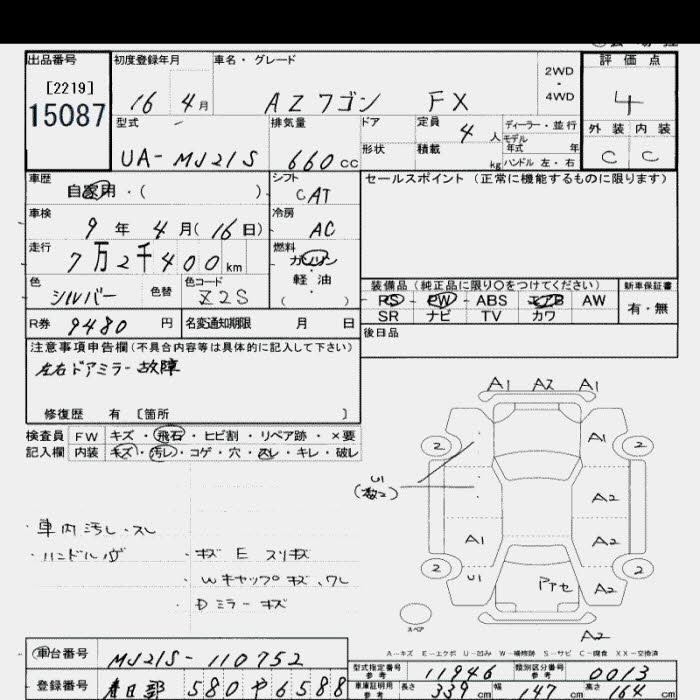 出品番号 初度登録年月 車名・グレード 2WD・4WD 評価点
[2219]
15087
16 4月 AZワゴン FX 4
型式 排気量 ドア 定員 4人 ディーラー・並行 外装 内装
モデル年式 年
UA-MJ21S 660cc 形状 積載 kg ハンドル 左・右 C C
車歴 シフト セールスポイント (正常に機能するものに限ります)
自家用・( ) CAT
車検 冷房
9年 4月(16日) AC
走行 燃料
7万2千400km ガソリン
軽油
( )
色 色替 色コード 装備品 (純正品に限り○をつけてください) 新車保証書
シルバー Z2S PS・PW・ABS エアB AW 有・無
SR ナビ TV カワ
R券 9480 円 名変通知期限 月 日 後日品
注意事項申告欄(不具合内容等は具体的に記入して下さい)
左右ドアミラー故障
修復歴 有 〔箇所 〕
検査員 FW キズ・飛石・ヒビ割・リペア跡・×要
記入欄 内装 キズ・汚レ・コゲ・穴・スレ・キレ・破レ
A1 A2 A1
2 A1 2
U1
(数2) A2
・車内汚レ・スレ
・ハンドル
・キズ E スリキズ
・Wキャップキズ、ワレ
・Dミラーキズ
A1 A2
2 U1 A2 2
スペア
A2
A-キズ E-エクボ U-凹み W-補修跡 S-サビ C-腐食 XX-交換済
車台番号 MJ21S-110752
型式指定番号 参考 11946 類別区分番号 参考 0013
登録番号 春日部 580 や 6588
車庫証明用 参考 長さ 339cm 幅 147cm 高さ 164cm